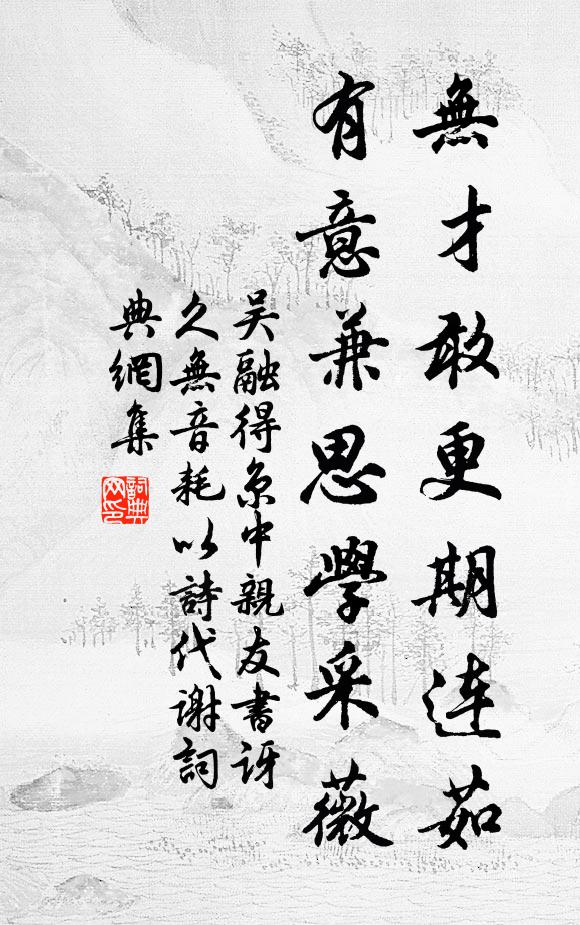 無才敢更期连茹
有意兼思學采薇
吴融得京中親友書讶
久無音耗以詩代谢詞
典網集
詞典网印